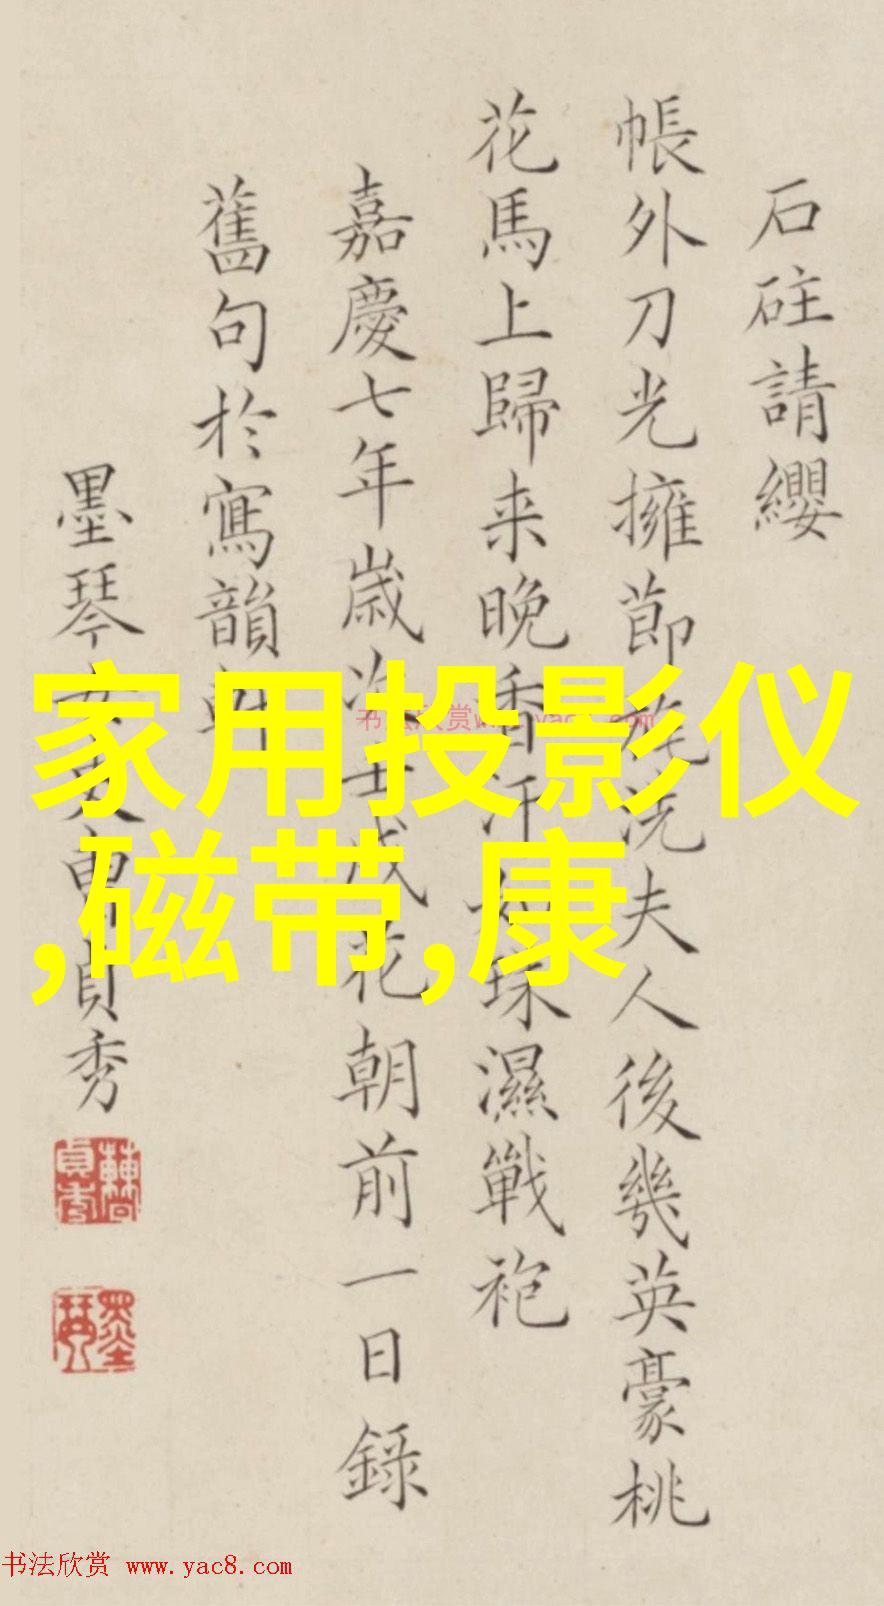 石砫請纓
帳外刀光擁節旄洗夫人後幾英豪桃
花馬上歸来晚香汗如珠濕戰袍
嘉慶七年歲次壬戌花朝前一日錄
舊句於寫韻軒
墨琴女史曹貞秀
家用投影仪
,磁带,康
书法欣赏 www.yac8.com
书法欣赏 www.yac8.com